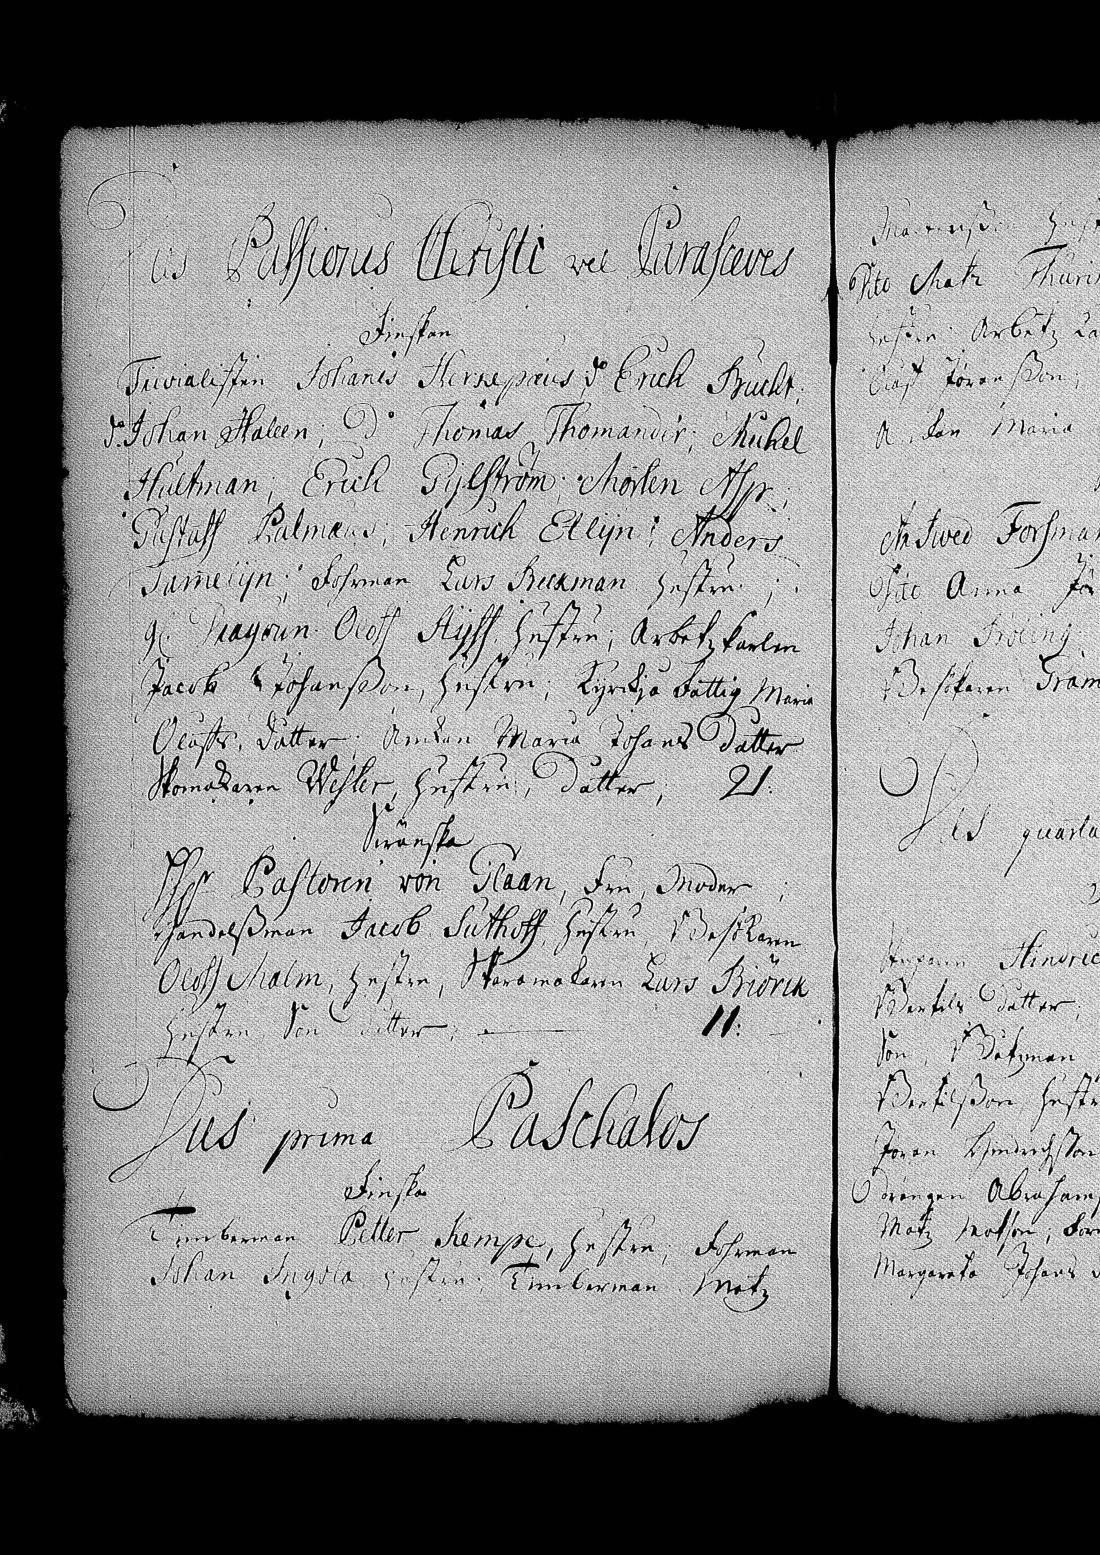 Dies Passionis Christi vel Parasceves
Finskan
Trivialisten Johanes Herrepæus; do Erich Bucht;
do Johan Haleen; Do Thomas Thomander; Michel
Hultman; Erich Gijlström; Mårten Asp;
Gustaff Palmæus; Henrich Ellijn; Anders
Tamelijn; Fohrman Lars Beckman hustru;
Dragoun Oloff Hijff, hustru; Arbetzkarlen
Jacob Johansson, hustru; Kyrckjo Fattig Maria
Oloffs dotter; Änckan Maria Johans Dotter
Skomakaren Wesler, hustru, Dotter; 21:
Swänska
Pastoren von Glaan, Fru, Moder;
Handelsman Jacob Suthoff, hustru, Besökaren
Oloff Malm, hustru, Skoromakaren Lars Biörck
hustru Son dotter; 11:
Dies prima Paschalos
Finska
Timberman Petter Kempe, hustru, Fohrman
Johan Ingola hustru; Timberman Matz
dito Matz
hustru; Arbetz
Olof Jöransson;
Maria
Forsman
dito Anna
Johan Fröling
Besökaren
Dies quarta
Hindric
Bertils dotter;
Son, Båtzman
Bertilsson hustr
Jöran Hindrichsson
drängen Abraham
Matz Matson;
Margareta Johans